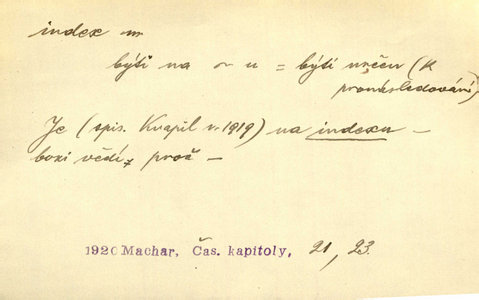 index m
býti na ~ u = býti určen (k
pronásledování)
Je (spis. Kvapil v r. 1919) na indexu –
bozi vědí, proč –
1920 Machar, Čas. kapitoly, 21, 23.